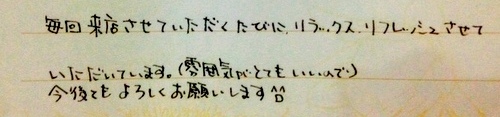 毎回来店させていただくたびに、リラックス、リフレッシュさせて
いただいています。(雰囲気がとてもいいので)
今後ともよろしくお願いします^^